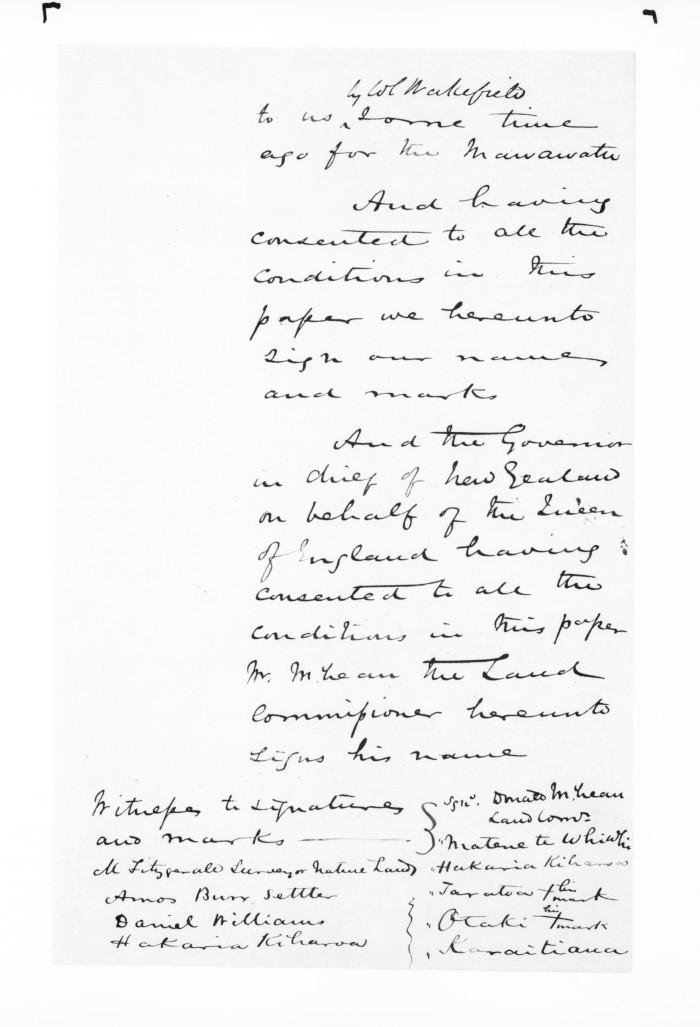 by Col Wakefield
to us ‸ some time
ago for the Manawatu
And having
consented to all the
conditions in this
paper we hereunto
sign our names
and marks
And the Governor
in chief of New Zealand
on behalf of the Queen
of England having
consented to all the
conditions in this paper
Mr. McLean the Land
Commissioner hereunto
signs his name
Witnesses to signatures
and marks
M Fitzgerald Surveyor Native Land
Amos Burr. Settler
Daniel Williams
Hakaria Kiharoa
Sgd. Donald McLean
Land Comr.
" Matene te Whiwhi
" Hakaria Kiharoa
" Taratoa his + mark
" Otaki his + mark
" Karaitiana